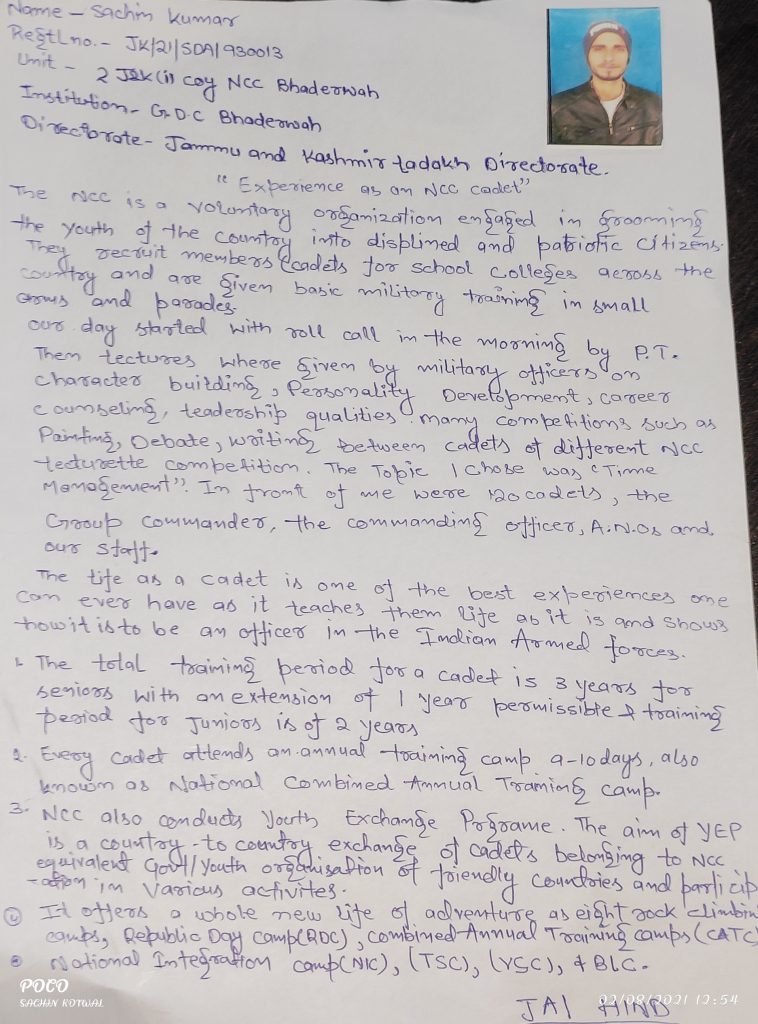 Name - Sachin Kumar
Regtl no. - JK/21/SDA/930013
Unit - 2 J&K (i) coy NCC Bhaderwah
Institution - G.D.C Bhaderwah
Directorate - Jammu and Kashmir Ladakh Directorate.
"Experience as an NCC cadet"
The NCC is a voluntary organization engaged in grooming
the youth of the country into displined and patriotic citizens.
They recruit members/cadets for school colleges across the
country and are given basic military training in small
arms and parades.
our day started with roll call in the morning by P.T.
Them Lectures where given by military officers on
character building, Personality Development, career
counseling, leadership qualities. many competitions such as
Painting, Debate, writing between cadets of different NCC
lecturette competition. The Topic I chose was "Time
Management". In front of me were 120 cadets, the
Group commander, the commanding officer, A.N.Os and
our staff.
The life as a cadet is one of the best experiences one
can ever have as it teaches them life as it is and shows
how it is to be an officer in the Indian Armed forces.
1. The total training period for a cadet is 3 years for
seniors with an extension of 1 year permissible & training
period for Juniors is of 2 years
2. Every cadet attends an annual training camp 9-10 days, also
known as National Combined Annual Training camp.
3. NCC also conducts Youth Exchange Prgrame. The aim of YEP
is a country-to country exchange of cadets belonging to NCC
equivalent Govt/Youth organisation of friendly countries and particip
-ation in various activites.
4 It offers a whole new life of adventure as eight rock climbin
camps, Republic Day camp(RDC), combined Annual Training camps (CATC)
National Integration camp(NIC), (TSC), (VSC), & BLC.
JAI HIND
POCO
SACHIN KOTWAL
02/09/2021 12:54